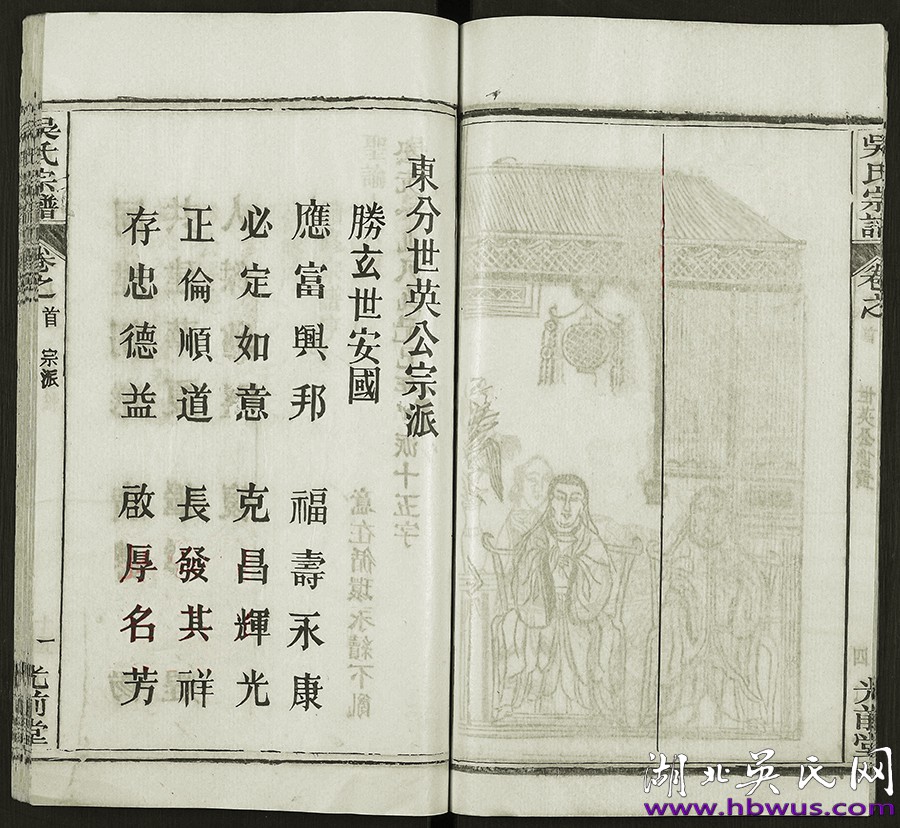 吳氏宗譜
卷之
首
四
光前堂
東分世英公宗派
勝玄世安國
應富興邦 福壽永康
必定如意 克昌輝光
正倫順道 長發其祥
存忠德益 啟厚名芳
吳氏宗譜
卷之首
宗派
一
光前堂
派十五字
意在循環永續不亂
湖北吳氏网
www.hbwus.com